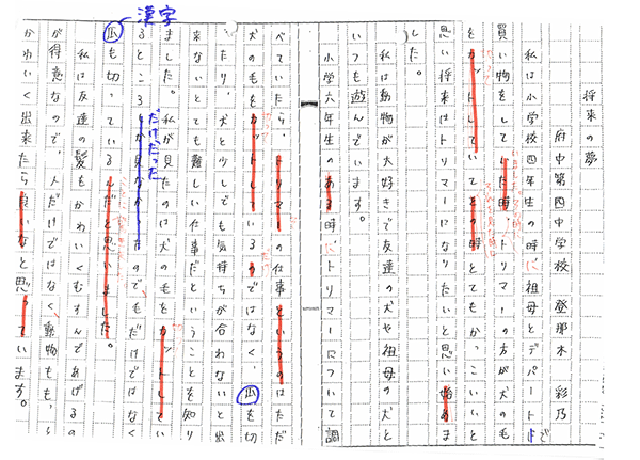 将来の夢
府中第四中学校 登那木 彩乃
私は小学校四年生の時に祖母とデパートで
買い物をしていた時、トリマーの方が犬の毛
をカットしていてその時とてもかっこいいと
思い将来はトリマーになりたいと思い始めま
した。
私は動物が大好きで友達の犬や祖母の犬と
いつも遊んでいます。
小学六年生のある時にトリマーについて調
べていたら、トリマーの仕事というのはただ
犬の毛をカットしているのではなく、爪も切
たり、犬と少しでも気持ちが合わないと出
来ないとても難しい仕事だということを知り
ました。私が見たのは犬の毛をカットしてい
るところしか見なかったので毛だけではなく
だけだった
漢字
爪も切っているんだと思いました。
私は友達の髪をかわいくむすんであげるの
が得意なので、人だけではなく動物もも、
かわいく出来たら良いなと思っています。